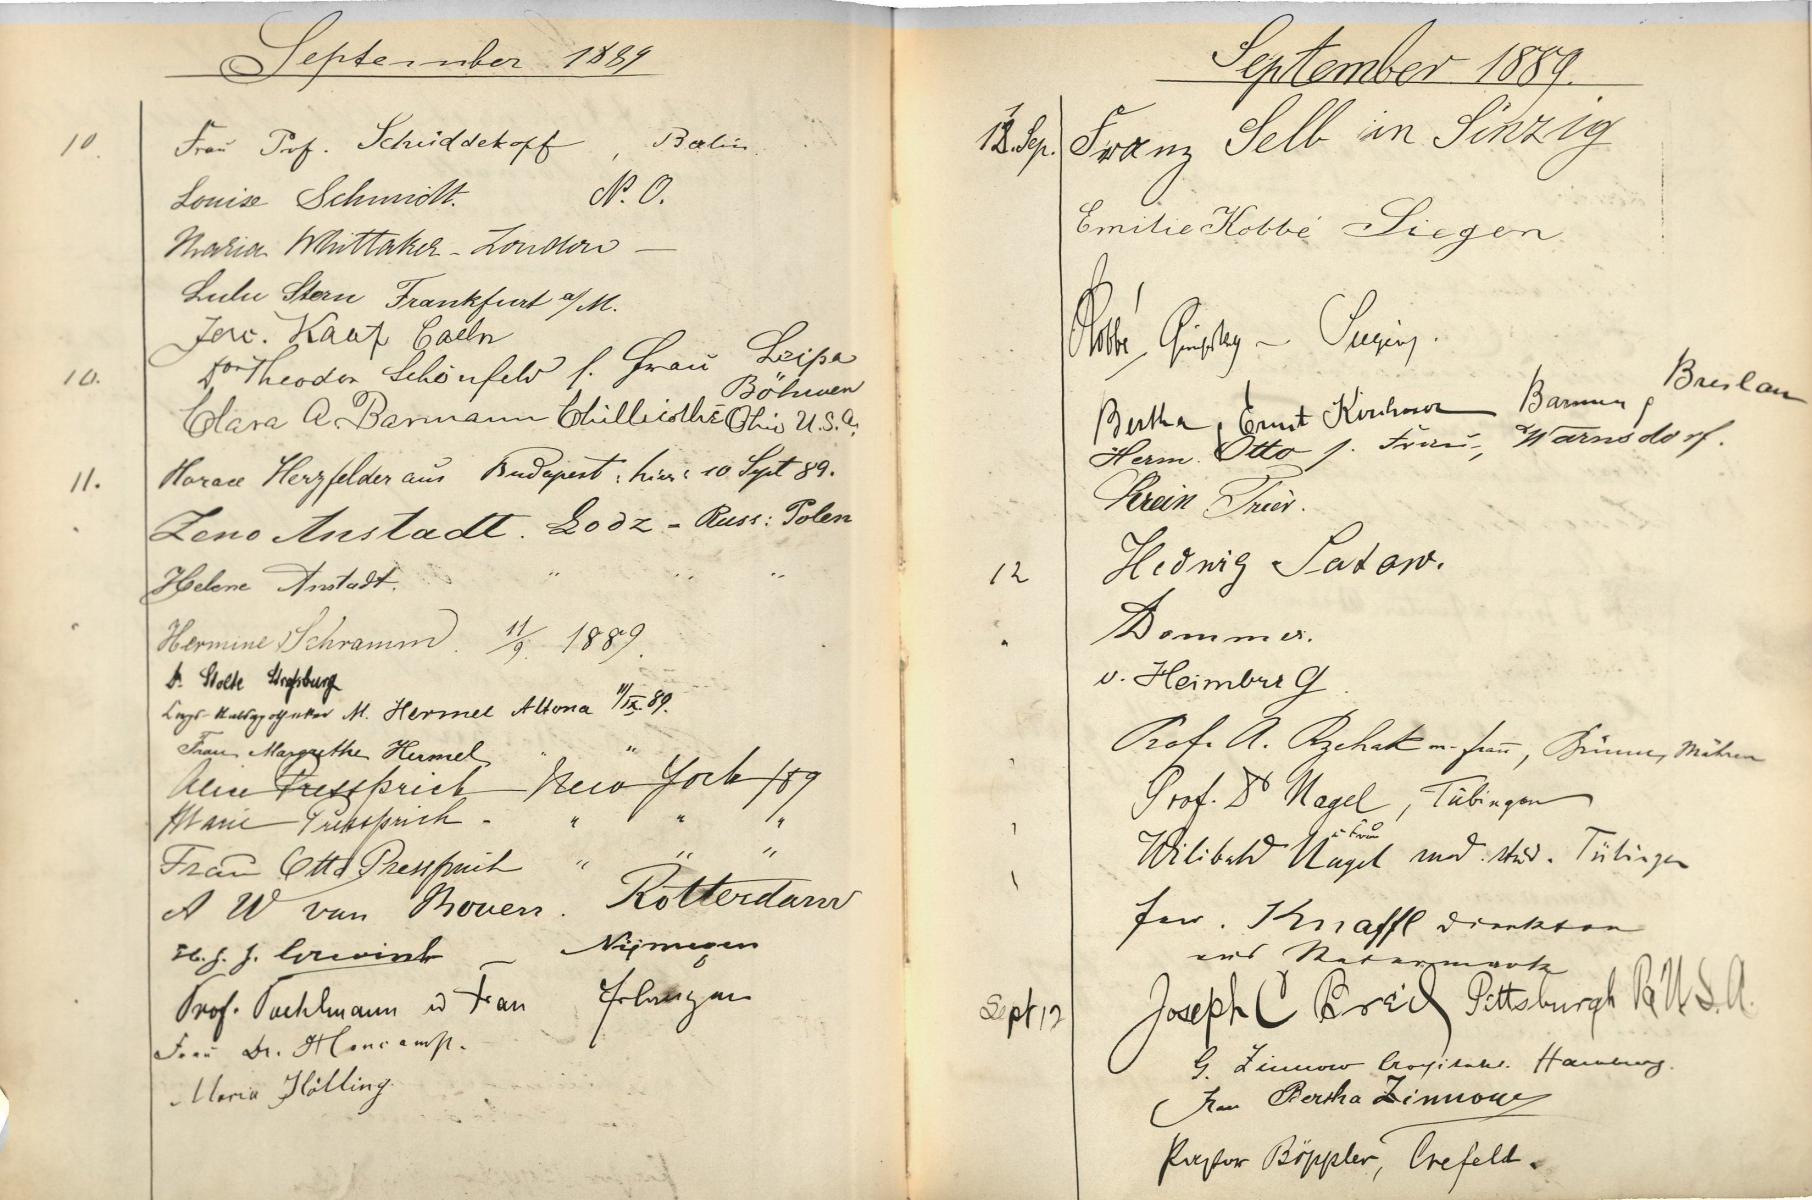 September 1889
10. Frau Prof. Schüddekopff, Berlin.
Louise Schmidt. N. O.
Maria Whittaker - London —
Lulu Stern Frankfurt a/M.
Kauf Coeln
10. Dor Theodor Schönfeld f. Frau Leipa
Böhmen
Clara A. Barmann Chillicothe Ohio U.S.A.
11. Horace Herzfelder aus Budapest : hier : 10 Sept 89.
Zeno Anstadt. Lodz - Russ: Polen
Helene Anstadt. " " "
Hermine Schramm. 11/9. 1889.
Dr. Stolte Strassburg
M. Hermel Altona 11/IX. 89.
Frau Margrethe Hermel " "
Alice Pressprich New York /89
Marie Pressprich - " " "
Frau Otto Pressprich " " "
A W van Rouen. Rotterdam
H. J. J. — Nijmegen
Prof. Poehlmann u Frau Erlangen
Frau Dr.
Maria Hölling.
September 1889.
12. Sep. Franz Selb in Sinzig
Emilie Kobbé Siegen
Kobbé
Bertha, Ernst Kirchner Barmen, Breslau
Herm. Otto f. Frau, Warnsdorf.
Krein Trier.
12 Hedwig Satow.
Dommer.
v. Heimberg.
Prof. A. Rzehak m. Frau, Brünn, Mähren
Prof. Dr Nagel, Tübingen
Wilibald Nagel u Frau med. stud. Tübingen
Knaffl Direktor
aus
Sept 12 Joseph C Breil Pittsburgh Pa U.S.A.
G. Zinnow Hamburg.
Frau Bertha Zinnow
Pastor Böppler, Crefeld.